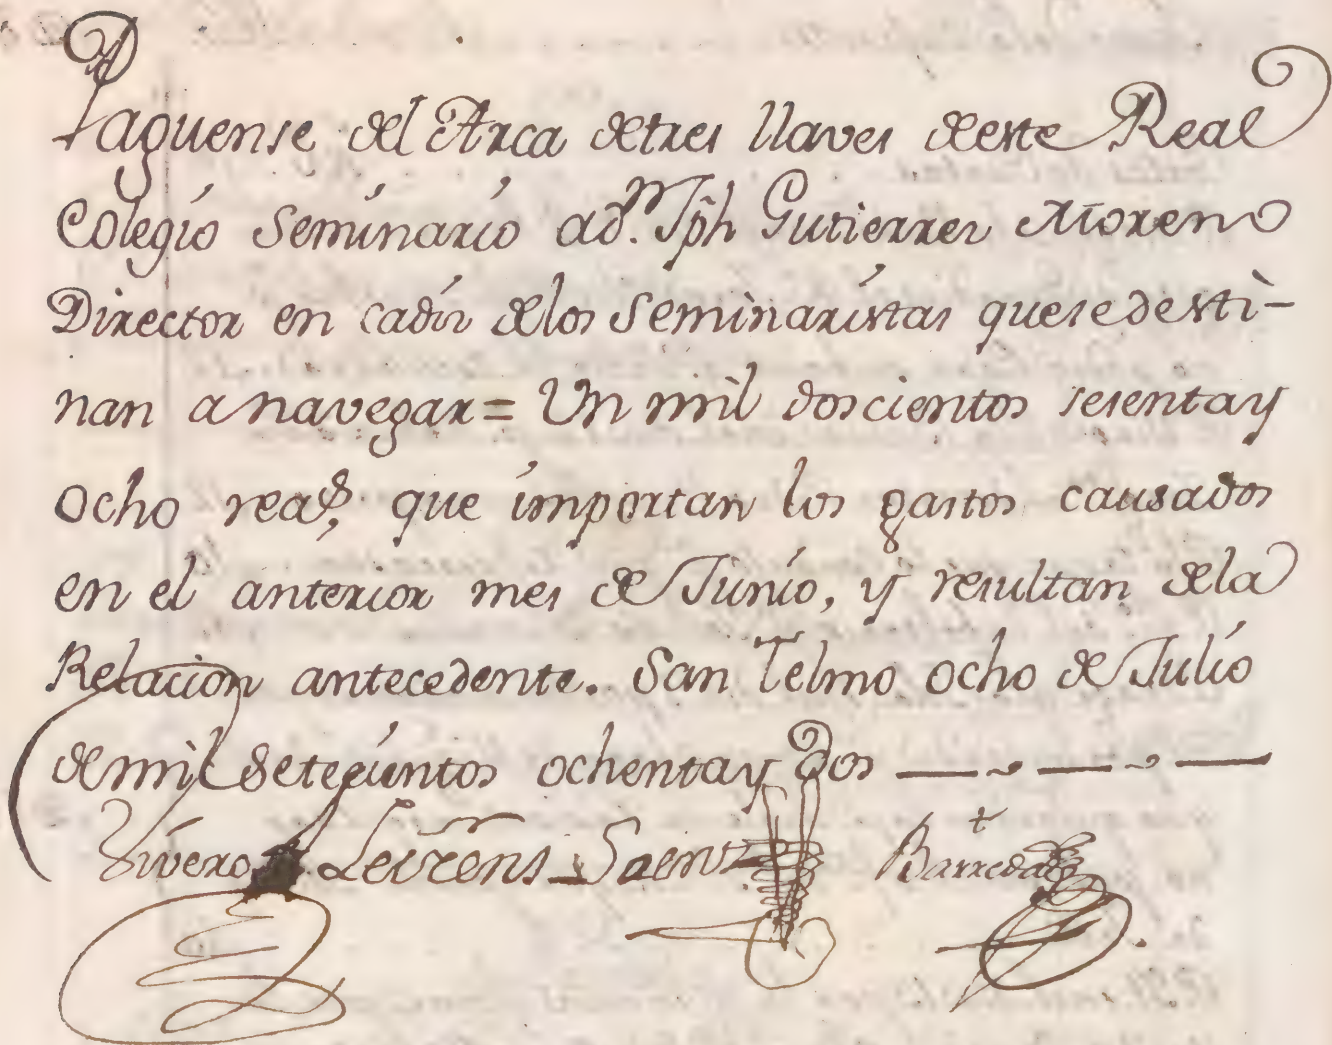 Paguense del Arca detres llaves deeste Real
Colegio Seminario ad.ⁿ Jph Gutierrez Moreno
Director en cadiz delos Seminaristas quesedesti-
nan anavegar = Un mil doscientos sesentay
ocho reaˢ, que importan los gastos causados
en el anterior mes de Junio, y resultan dela
Relacion antecedente. San Telmo ocho de Julio
demil setecientos ochentay dos
Vivero Leirens Saenz Barreda